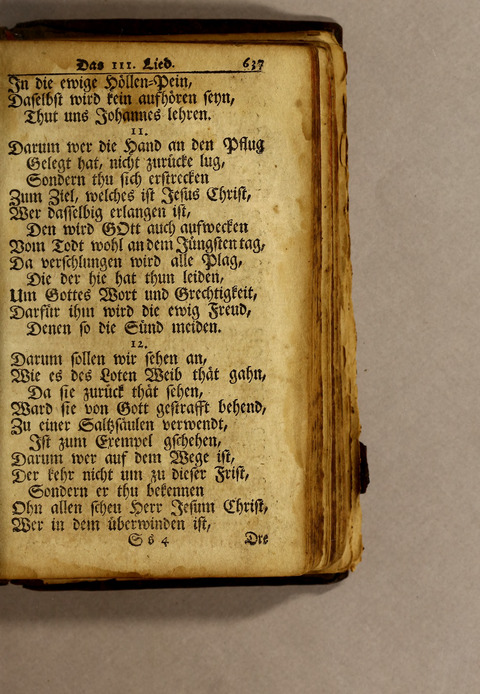 Das 111. Lied. 637
In die ewige Höllen-Pein,
Daselbst wird kein aufhören seyn,
Thut uns Johannes lehren.
11.
Darum wer die Hand an den Pflug
Gelegt hat, nicht zurücke lug,
Sondern thu sich erstrecken
Zum Ziel, welches ist Jesus Christ,
Wer dasselbig erlangen ist,
Den wird GOtt auch aufwecken
Vom Todt wohl an dem Jüngsten tag,
Da verschlungen wird alle Plag,
Die der hie hat thun leiden,
Um Gottes Wort und Grechtigkeit,
Darfür ihm wird die ewig Freud,
Denen so die Sünd meiden.
12.
Darum sollen wir sehen an,
Wie es des Loten Weib thät gahn,
Da sie zurück thät sehen,
Ward sie von Gott gestrafft behend,
Zu einer Saltzsäulen verwendt,
Ist zum Exempel gschehen,
Darum wer auf dem Wege ist,
Der kehr nicht um zu dieser Frist,
Sondern er thu bekennen
Ohn allen scheu Herr Jesum Christ,
Wer in dem überwinden ist,
S s 4 Dre